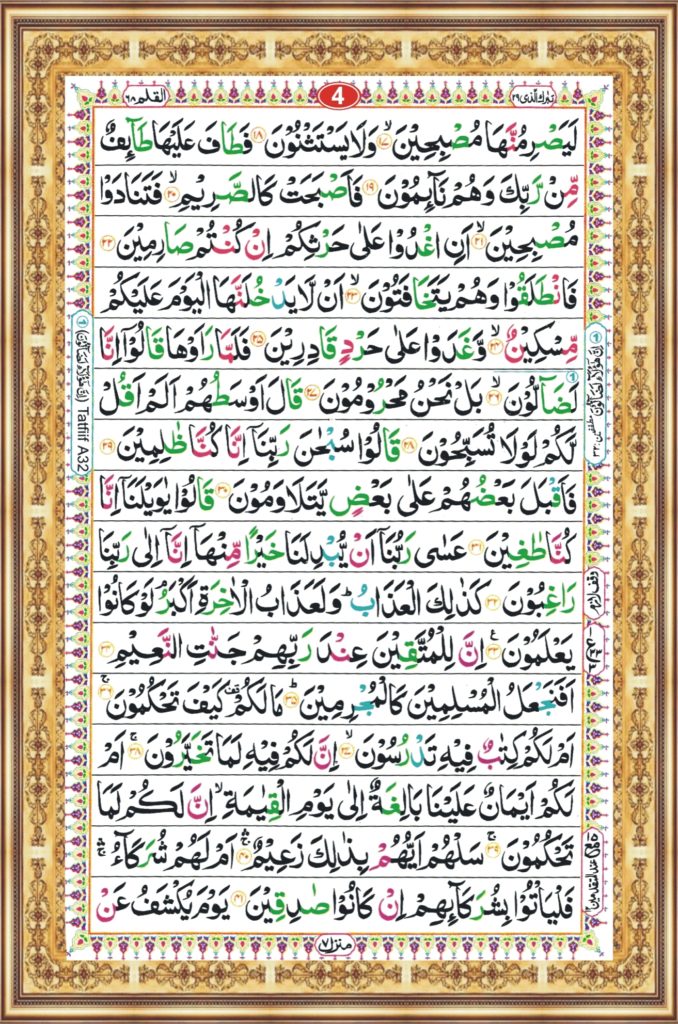 تبٰرك الذی ۲۹
4
القلم ۶۸
لَيَصْرِمُنَّهَا مُصْبِحِيْنَۙ ﴿۱۷﴾ وَلَا يَسْتَثْنُوْنَ ﴿۱۸﴾ فَطَافَ عَلَيْهَا طَآئِفٌ
مِّنْ رَّبِّكَ وَهُمْ نَآئِمُوْنَ ﴿۱۹﴾ فَاَصْبَحَتْ كَالصَّرِيْمِۙ ﴿۲۰﴾ فَتَنَادَوْا
مُصْبِحِيْنَۙ ﴿۲۱﴾ اَنِ اغْدُوْا عَلٰى حَرْثِكُمْ اِنْ كُنْتُمْ صَارِمِيْنَ ﴿۲۲﴾
فَانْطَلَقُوْا وَهُمْ يَتَخَافَتُوْنَۙ ﴿۲۳﴾ اَنْ لَّا يَدْخُلَنَّهَا الْيَوْمَ عَلَيْكُمْ
مِّسْكِيْنٌۙ ﴿۲۴﴾ وَّغَدَوْا عَلٰى حَرْدٍ قَادِرِيْنَ ﴿۲۵﴾ فَلَمَّا رَاَوْهَا قَالُوْٓا اِنَّا
لَضَآلُّوْنَۙ ﴿۲۶﴾ بَلْ نَحْنُ مَحْرُوْمُوْنَ ﴿۲۷﴾ قَالَ اَوْسَطُهُمْ اَلَمْ اَقُلْ
لَّكُمْ لَوْلَا تُسَبِّحُوْنَ ﴿۲۸﴾ قَالُوْا سُبْحٰنَ رَبِّنَآ اِنَّا كُنَّا ظٰلِمِيْنَ ﴿۲۹﴾
فَاَقْبَلَ بَعْضُهُمْ عَلٰى بَعْضٍ يَّتَلَاوَمُوْنَ ﴿۳۰﴾ قَالُوْا يٰوَيْلَنَآ اِنَّا
كُنَّا طٰغِيْنَ ﴿۳۱﴾ عَسٰى رَبُّنَآ اَنْ يُّبْدِلَنَا خَيْرًا مِّنْهَآ اِنَّآ اِلٰى رَبِّنَا
رَاغِبُوْنَ ﴿۳۲﴾ كَذٰلِكَ الْعَذَابُؕ وَلَعَذَابُ الْاٰخِرَةِ اَكْبَرُۘ لَوْ كَانُوْا
يَعْلَمُوْنَ ﴿۳۳﴾ اِنَّ لِلْمُتَّقِيْنَ عِنْدَ رَبِّهِمْ جَنّٰتِ النَّعِيْمِ ﴿۳۴﴾
اَفَنَجْعَلُ الْمُسْلِمِيْنَ كَالْمُجْرِمِيْنَؕ ﴿۳۵﴾ مَا لَكُمْ كَيْفَ تَحْكُمُوْنَۚ ﴿۳۶﴾
اَمْ لَكُمْ كِتٰبٌ فِيْهِ تَدْرُسُوْنَۙ ﴿۳۷﴾ اِنَّ لَكُمْ فِيْهِ لَمَا تَخَيَّرُوْنَۚ ﴿۳۸﴾ اَمْ
لَكُمْ اَيْمَانٌ عَلَيْنَا بَالِغَةٌ اِلٰى يَوْمِ الْقِيٰمَةِۙ اِنَّ لَكُمْ لَمَا
تَحْكُمُوْنَۚ ﴿۳۹﴾ سَلْهُمْ اَيُّهُمْ بِذٰلِكَ زَعِيْمٌۚ ﴿۴۰﴾ اَمْ لَهُمْ شُرَكَآءُۚ
فَلْيَاْتُوْا بِشُرَكَآئِهِمْ اِنْ كَانُوْا صٰدِقِيْنَ ﴿۴۱﴾ يَوْمَ يُكْشَفُ عَنْ
اِنَّ هٰٓؤُلَآءِ لَضَآلُّوْنَ مطففين: ۳۲
(اِنَّ هٰٓؤُلَآءِ لَضَآلُّوْنَ) Tatfiif A32
وقف لازم
منزل ۷